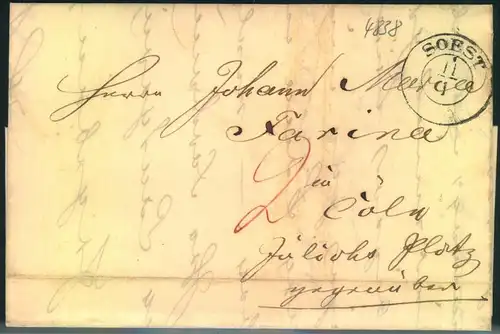 4838
SOEST
11
9
Herrn Johann Maria
Farina
2
in
Cöln
Jülichs Platz
gegenüber